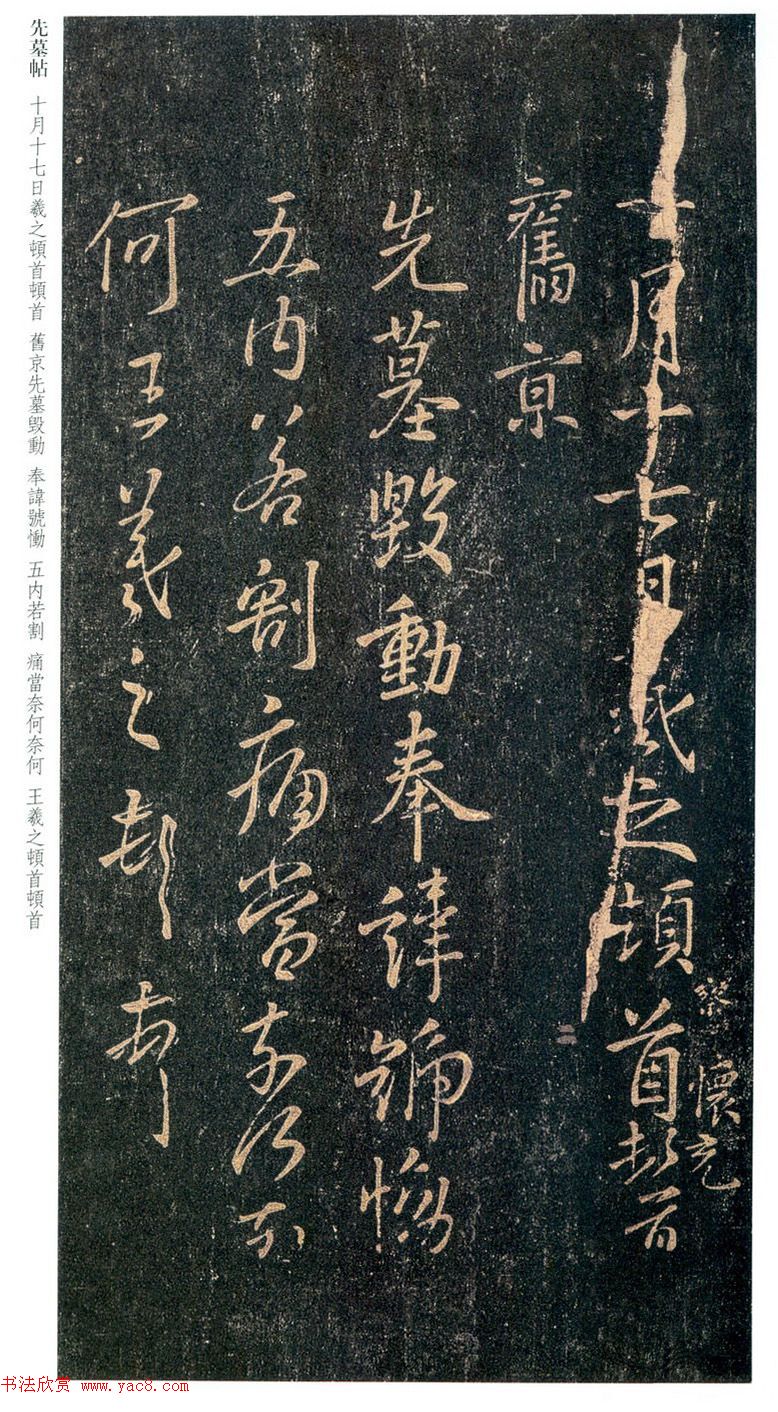 十月十七日羲之頓首頓首
察
懷充
舊京
先墓毀動奉諱號慟
五內若割痛當奈何奈
何王羲之頓首頓首
先墓帖 十月十七日羲之頓首頓首 舊京先墓毀動 奉諱號慟 五内若割 痛當奈何奈何 王羲之頓首頓首
书法欣赏 www.yac8.com